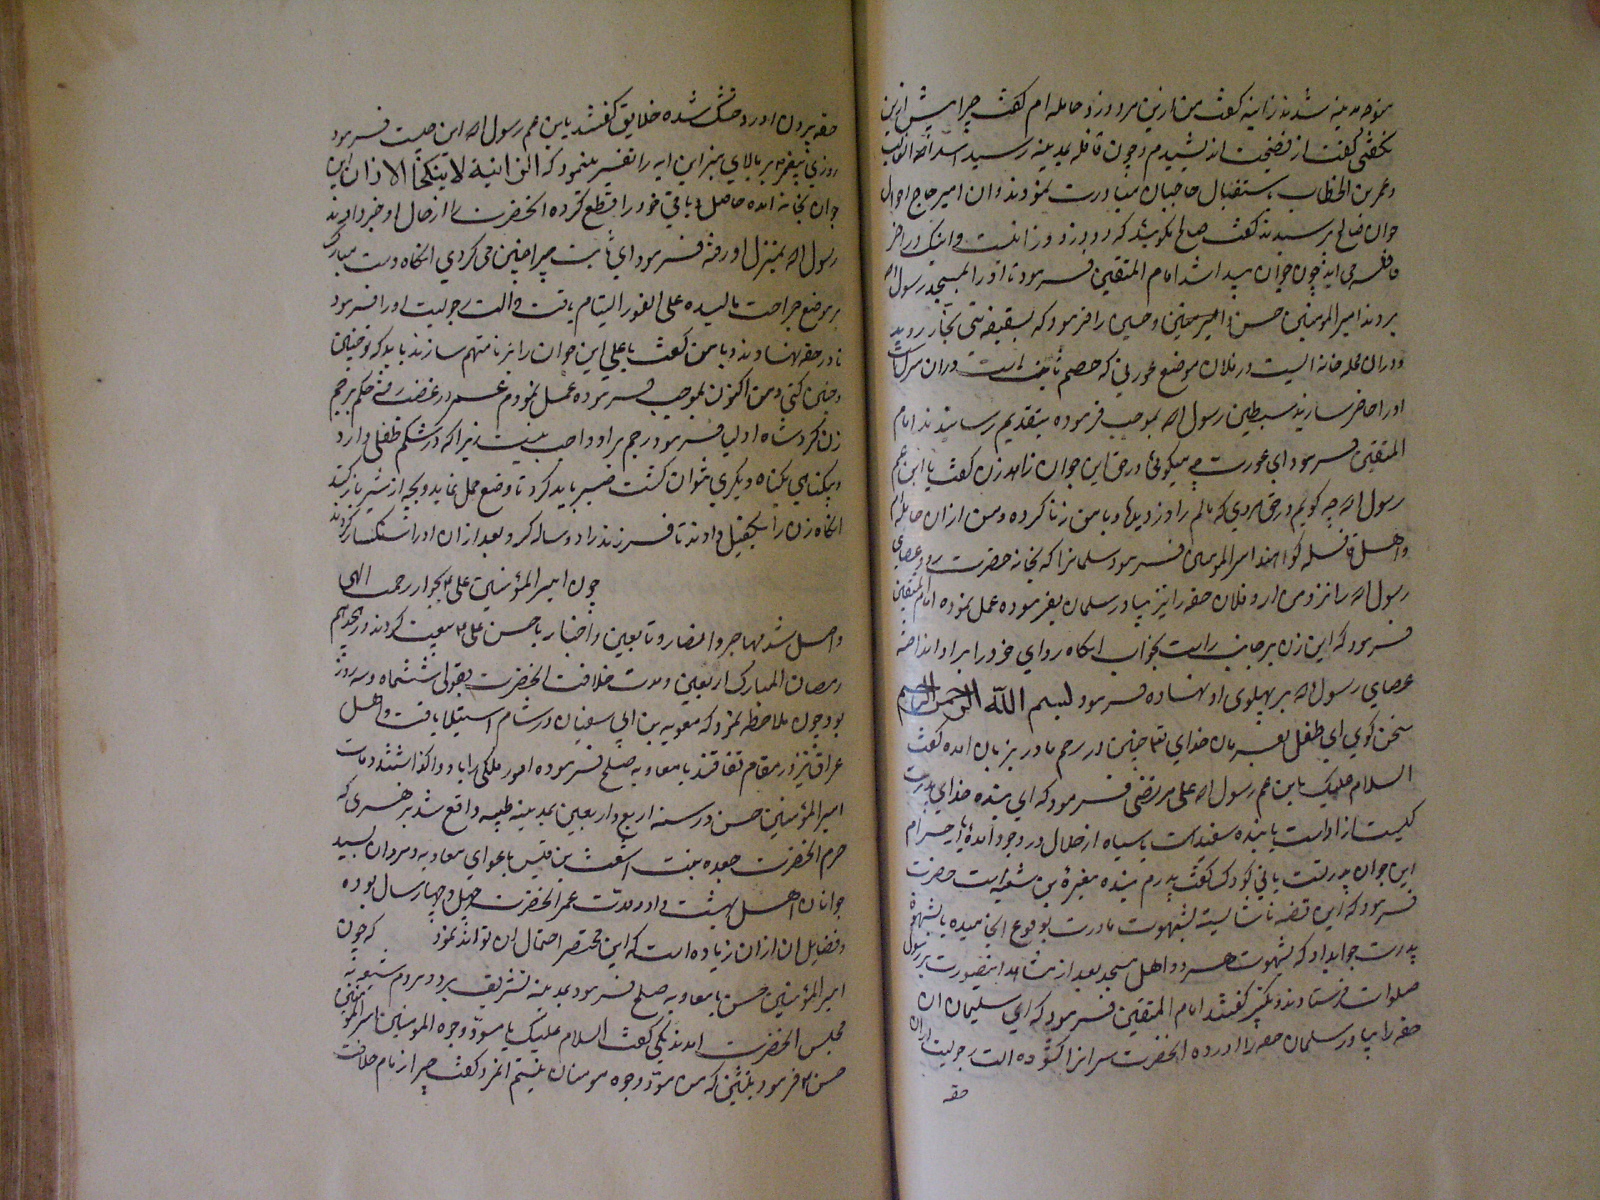 متوجه مدینه شدند زانیه گفت من ازین مرد دزد حامله ام گفت چرا پیش ازین
نگفتی گفت از فضیحت اندیشیدم و چون قافله بمدینه رسید اسد الله الغالب
و عمر بن الخطاب باستقبال حاجیان مبادرت نمودند و ان امیر حاج احوال
جوان صالح پرسیدند گفت صالح مگوئید که دزد و زانیست و اینک در اخر
قافله می اید چون جوان پیدا شد امام المتقین فرمود تا او را بمسجد رسول الله
بردند امیر المومنین حسن و حسین را فرمود که بسقیفه بنی نجار روید
و دران محله خانه ایست در فلان موضع عورتی که خصم است دران
او را حاضر سازید سبطین رسول الله بموجب فرموده بتقدیم رسانیدند امام
المتقین فرمود ای عورت چه میکوئی در حق این جوان زاهد زن گفت یا ابن عم
رسول الله چه گویم در حق مردی که مالم را دزدیده و با من زنا کرده و من ازان حامله ام
و اهل قافله گواهند امیر المومنین فرمود سلمانرا که بخانه حضرت رو و عصای
رسول الله را نزد من ار و فلان حقه را نیز بیاور سلمان بفرموده عمل نموده امام المتقین
فرمود که این زن بر جانب راست بخواب انگاه ردای خود را بر او انداخته
عصای رسول الله بر پهلوی او نهاده فرمود بسم الله الرحمن الرحیم
سخن گوی ای طفل بفرمان خدای تعالی جنین در رحم مادر بزبان امده گفت
السلام علیک یا بن عم رسول الله علی مرتضی فرمود که ای بنده خدای پدرت
کیست ازاد است یا بنده سفید است یا سیاه از حلال در وجود آمدۀ یا از حرام
این جوان پدر تست یا نی کودک گفت پدرم بنده مغیرۀ بن شعبه است حضرت
فرمود که این قضیه ناشایسته بشهوت مادرت بوقوع انجامیده یا بشهوة
پدرت جواب داد که بشهوت هر دو اهل مسجد بعد از مشاهده اینصورت بر رسول
صلوات فرستادند و تکبیر گفتند امام المتقین فرمود که ای سلیمان ان
حقه را بیاور سلمان حقه را اورده انحضرت سر انرا گشوده الت رجولیت ازان
حقه
حقه بیرون اورد خشک شده خلایق گفتند یا بن عم رسول الله این چیست فرمود
روزی پیغمبر بر بالای منبر این ایه را تفسیر مینمود که الزانیة لا ینکحها الا زان این
جوان بخانه امده حاصل و باقی خود را قطع کرده انحضرت را از حال او خبر دادند
رسول الله بمنزل او رفته فرمود ای ثابت چرا چنین می کردی انگاه دست مبارک
بر موضع جراحت مالیده علی الفور التیام یافت و الت رجولیت او را فرمود
تا در حقه نهادند و با من گفت یا علی این جوان را بزنا متهم سازند باید که تو چنین
و چنین کنی و من اکنون بموجب فرموده عمل نمودم عمر در غضب رفته حکم برجم
زن کرد شاه اولیا فرمود رجم بر او واجب نیست زیرا که در شکم طفلی دارد
و بیگناهی بگناه دیگری نتوان کشت صبر باید کرد تا وضع حمل نماید و بچه از شیر باز کند
انگاه زن را بکفیل دادند تا فرزند زاد دو ساله کرد و بعد ازان او را سنگسار کردند
چون امیر المؤمنین علی بجوار رحمت الهی
واصل شد مهاجر و انصار و تابعین و اخیار با حسن علی بیعت کردند در هجدهم
رمضان المبارک اربعین و مدت خلافت انحضرت بقولی ششماه و سه روز
بود چون ملاحظه نمود که معویه بن ابی سفیان در شام استیلا یافت و اهل
عراق نیز در مقام نفاقند با معاویه صلح فرموده امور ملکی را باو واگذاشتند وفات
امیر المؤمنین حسن در سنه اربع و اربعین بمدینه طیبه واقع شد بزهری که
حرم انحضرت جعده بنت اشعث بن قیس باغوای معاویه و مروان بسید
جوانان اهل بهشت داد و مدت عمر انحضرت چهل و چهار سال بوده
و فضایل ان ازان زیاده است که این مختصر احتمال ان تواند نمود که چون
امیر المؤمنین حسن با معاویه صلح فرمود بمدینه تشریف برد و مردم
مجلس انحضرت امدند یکی گفت السلام علیک یا مسوّد وجوه المؤمنین امیر المؤمنین
حسن فرمود بنشین که من مسوّد وجوه مومنان نیستم انمرد گفت چرا زمام خلافت